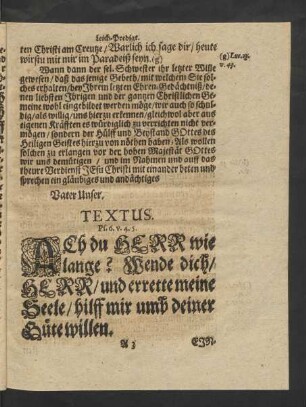 Leich-Predigt.
ten Christi am Creutze / Warlich ich sage dir / heute
wirstu mit mir im Paradeiß seyn. (g)
(g) Luc. 23.
v. 43.
Wann dann der sel. Schwester ihr letzter Wille
gewesen / daß das jenige Gebeth / mit welchem Sie sol-
ches erhalten / bey Ihrem letzten Ehren-Gedächtniß / de-
nen liebsten Ihrigen und der gantzen Christlichen Ge-
meine wohl eingebildet werden möge / wir auch so schul-
dig / als willig / uns hierzu erkennen / gleichwol aber aus
eigenen Kräfften es würdiglich zu verrichten nicht ver-
mögen / sondern der Hülff und Beystand GOttes des
Heiligen Geistes hierzu von nöthen haben: Als wollen
solchen zu erlangen vor der hohen Majestät GOttes
wir uns demütigen / und im Nahmen und auff das
theure Verdienst JEsu Christi mit einander beten und
sprechen ein gläubiges und andächtiges
Vater Unser.
TEXTUS.
Ps. 6. v. 4. 5.
ACh du HERR wie
lange? Wende dich /
HERR / und errette meine
Seele / hilff mir umb deiner
Güte willen.
A 3
EJN-